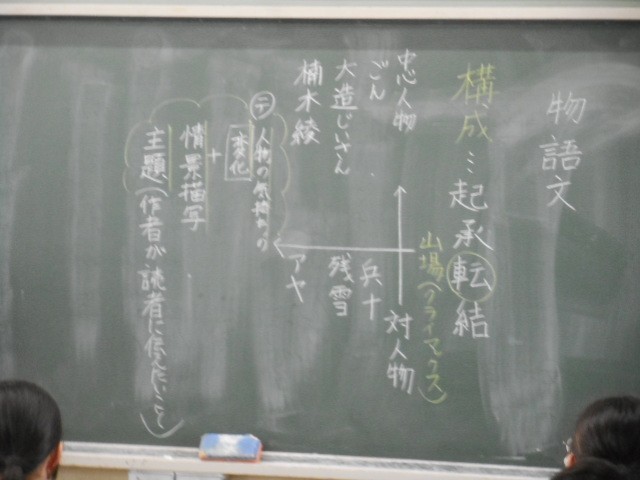 物語文
構成…起承転結
山場（クライマックス）
中心人物
対人物
ごん
兵十
大造じいさん
残雪
楠木綾
アヤ
テ
人物の気持ちの
変化
+
情景描写
主題（作者が読者に伝えたいこと）